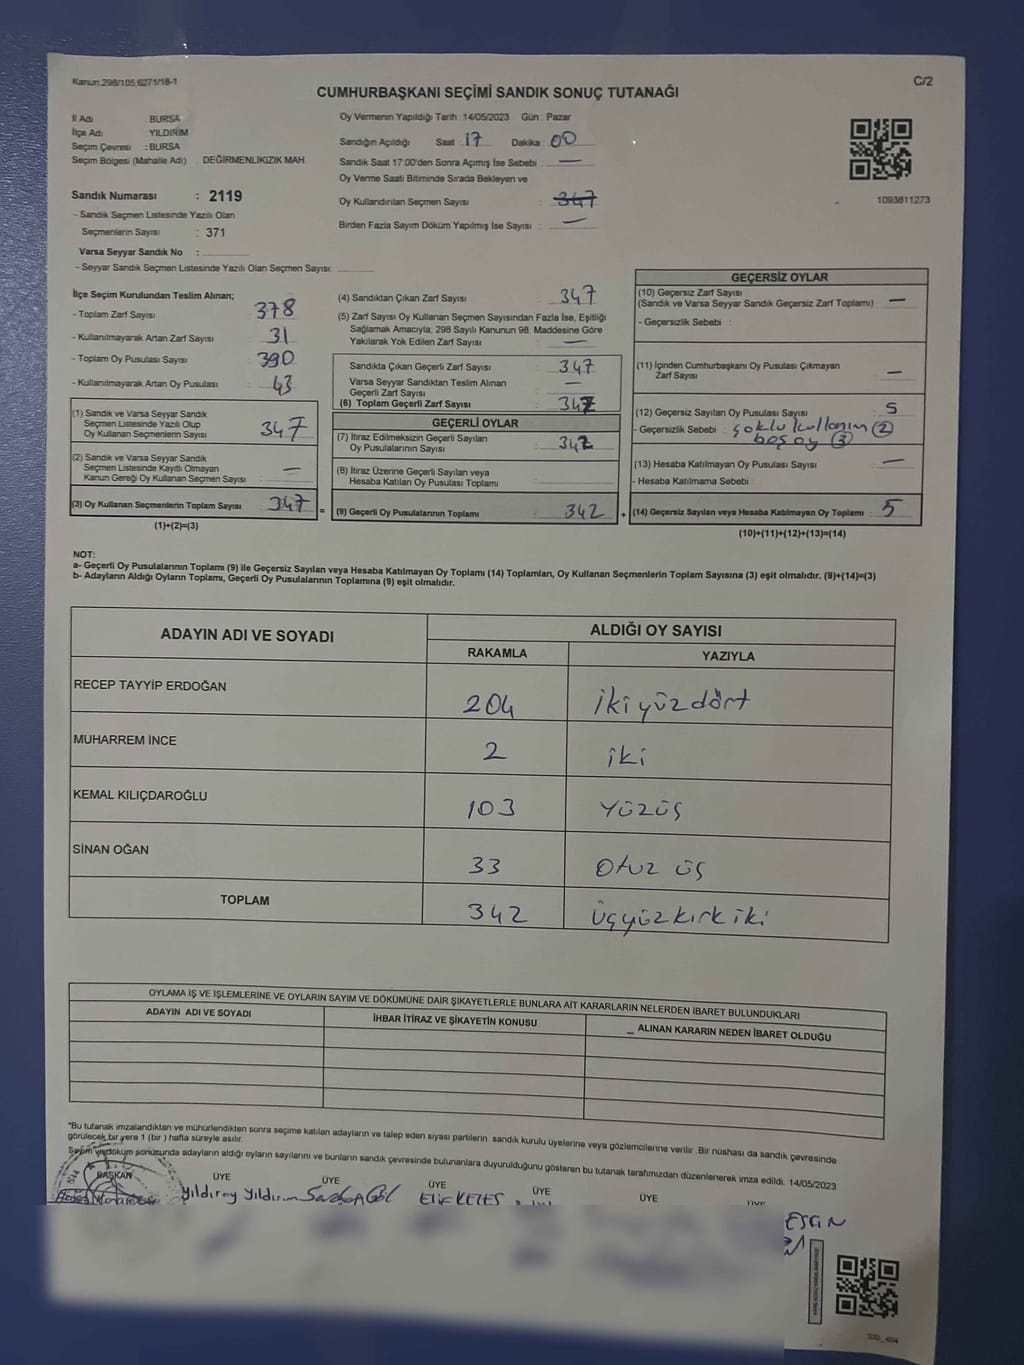 Kanun:298/105,6271/18-1
C/2
CUMHURBAŞKANI SEÇİMİ SANDIK SONUÇ TUTANAĞI
İl Adı BURSA
İlçe Adı YILDIRIM
Seçim Çevresi : BURSA
Seçim Bölgesi (Mahalle Adı) DEĞİRMENLİKIZIK MAH.
Sandık Numarası : 2119
- Sandık Seçmen Listesinde Yazılı Olan
Seçmenlerin Sayısı : 371
Varsa Seyyar Sandık No :
- Seyyar Sandık Seçmen Listesinde Yazılı Olan Seçmen Sayısı:
Oy Vermenin Yapıldığı Tarih :14/05/2023 Gün : Pazar
Sandığın Açıldığı Saat 17 Dakika 00
Sandık Saat 17:00'den Sonra Açımış İse Sebebi : —
Oy Verme Saati Bitiminde Sırada Bekleyen ve
Oy Kullandırılan Seçmen Sayısı : 347
Birden Fazla Sayım Döküm Yapılmış İse Sayısı : —
1093811273
İlçe Seçim Kurulundan Teslim Alınan;
- Toplam Zarf Sayısı 378
- Kullanılmayarak Artan Zarf Sayısı 31
- Toplam Oy Pusulası Sayısı 390
- Kullanılmayarak Artan Oy Pusulası 43
(1) Sandık ve Varsa Seyyar Sandık
Seçmen Listesinde Yazılı Olup
Oy Kullanan Seçmenlerin Sayısı 347
(2) Sandık ve Varsa Seyyar Sandık
Seçmen Listesinde Kayıtlı Olmayan
Kanun Gereği Oy Kullanan Seçmen Sayısı —
(3) Oy Kullanan Seçmenlerin Toplam Sayısı 347 =
(1)+(2)=(3)
(4) Sandıktan Çıkan Zarf Sayısı : 347
(5) Zarf Sayısı Oy Kullanan Seçmen Sayısından Fazla İse, Eşitliği
Sağlamak Amacıyla, 298 Sayılı Kanunun 98. Maddesine Göre
Yakılarak Yok Edilen Zarf Sayısı : —
Sandıkta Çıkan Geçerli Zarf Sayısı : 347
Varsa Seyyar Sandıktan Teslim Alınan
Geçerli Zarf Sayısı —
(6) Toplam Geçerli Zarf Sayısı : 347
GEÇERLİ OYLAR
(7) İtiraz Edilmeksizin Geçerli Sayılan
Oy Pusulalarının Sayısı : 342
(8) İtiraz Üzerine Geçerli Sayılan veya
Hesaba Katılan Oy Pusulası Toplamı
(9) Geçerli Oy Pusulalarının Toplamı : 342 +
GEÇERSİZ OYLAR
(10) Geçersiz Zarf Sayısı
(Sandık ve Varsa Seyyar Sandık Geçersiz Zarf Toplamı) —
- Geçersizlik Sebebi :
(11) İçinden Cumhurbaşkanı Oy Pusulası Çıkmayan
Zarf Sayısı —
(12) Geçersiz Sayılan Oy Pusulası Sayısı 5
- Geçersizlik Sebebi : çoklu kullanım (2)
boş oy (3)
(13) Hesaba Katılmayan Oy Pusulası Sayısı —
- Hesaba Katılmama Sebebi
(14) Geçersiz Sayılan veya Hesaba Katılmayan Oy Toplamı 5
(10)+(11)+(12)+(13)=(14)
NOT:
a- Geçerli Oy Pusulalarının Toplamı (9) ile Geçersiz Sayılan veya Hesaba Katılmayan Oy Toplamı (14) Toplamları, Oy Kullanan Seçmenlerin Toplam Sayısına (3) eşit olmalıdır. (9)+(14)=(3)
b- Adayların Aldığı Oyların Toplamı, Geçerli Oy Pusulalarının Toplamına (9) eşit olmalıdır.
ADAYIN ADI VE SOYADI ALDIĞI OY SAYISI
RAKAMLA YAZIYLA
RECEP TAYYİP ERDOĞAN 204 iki yüz dört
MUHARREM İNCE 2 iki
KEMAL KILIÇDAROĞLU 103 Yüzüç
SİNAN OĞAN 33 Otuz üç
TOPLAM 342 üçyüzkırk iki
OYLAMA İŞ VE İŞLEMLERİNE VE OYLARIN SAYIM VE DÖKÜMÜNE DAİR ŞİKAYETLERLE BUNLARA AİT KARARLARIN NELERDEN İBARET BULUNDUKLARI
ADAYIN ADI VE SOYADI İHBAR İTİRAZ VE ŞİKAYETİN KONUSU ALINAN KARARIN NEDEN İBARET OLDUĞU
*Bu tutanak imzalandıktan ve mühürlendikten sonra seçime katılan adayların ve talep eden siyasi partilerin sandık kurulu üyelerine veya gözlemcilerine verilir .Bir nüshası da sandık çevresinde
görülecek bir yere 1 (bir ) hafta süreyle asılır.
Seçim ve döküm sonusunda adayların aldığı oyların sayılarını ve bunların sandık çevresinde bulunanlara duyurulduğunu gösteren bu tutanak tarafımızdan düzenlenerek imza edildi. 14/05/2023
BAŞKAN ÜYE ÜYE ÜYE ÜYE ÜYE ÜYE
Yıldıray Yıldırım